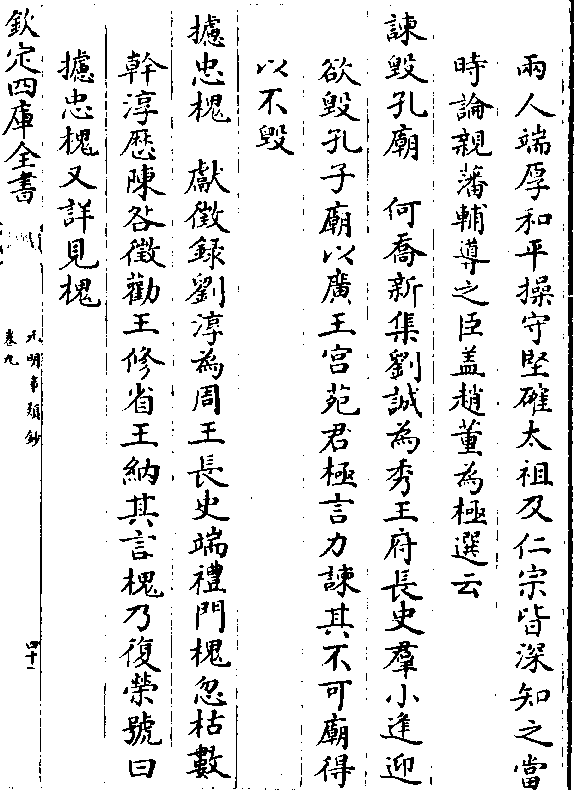 兩人端厚和平操守堅確太祖及仁宗皆深知之當
時論親藩輔導之臣盖趙董為極選云
諫毁孔廟　何喬新集劉誠為秀王府長史羣小進迎
欲毁孔子廟以廣王宫苑君極言力諫其不可廟得
以不毁
攄忠槐　獻徵録劉淳為周王長史端禮門槐忽枯數
幹淳歴陳咎徵勸王修省王納其言槐乃復榮號曰
攄忠槐又詳見槐
欽定四庫全書
元明事類鈔
卷九
四十一